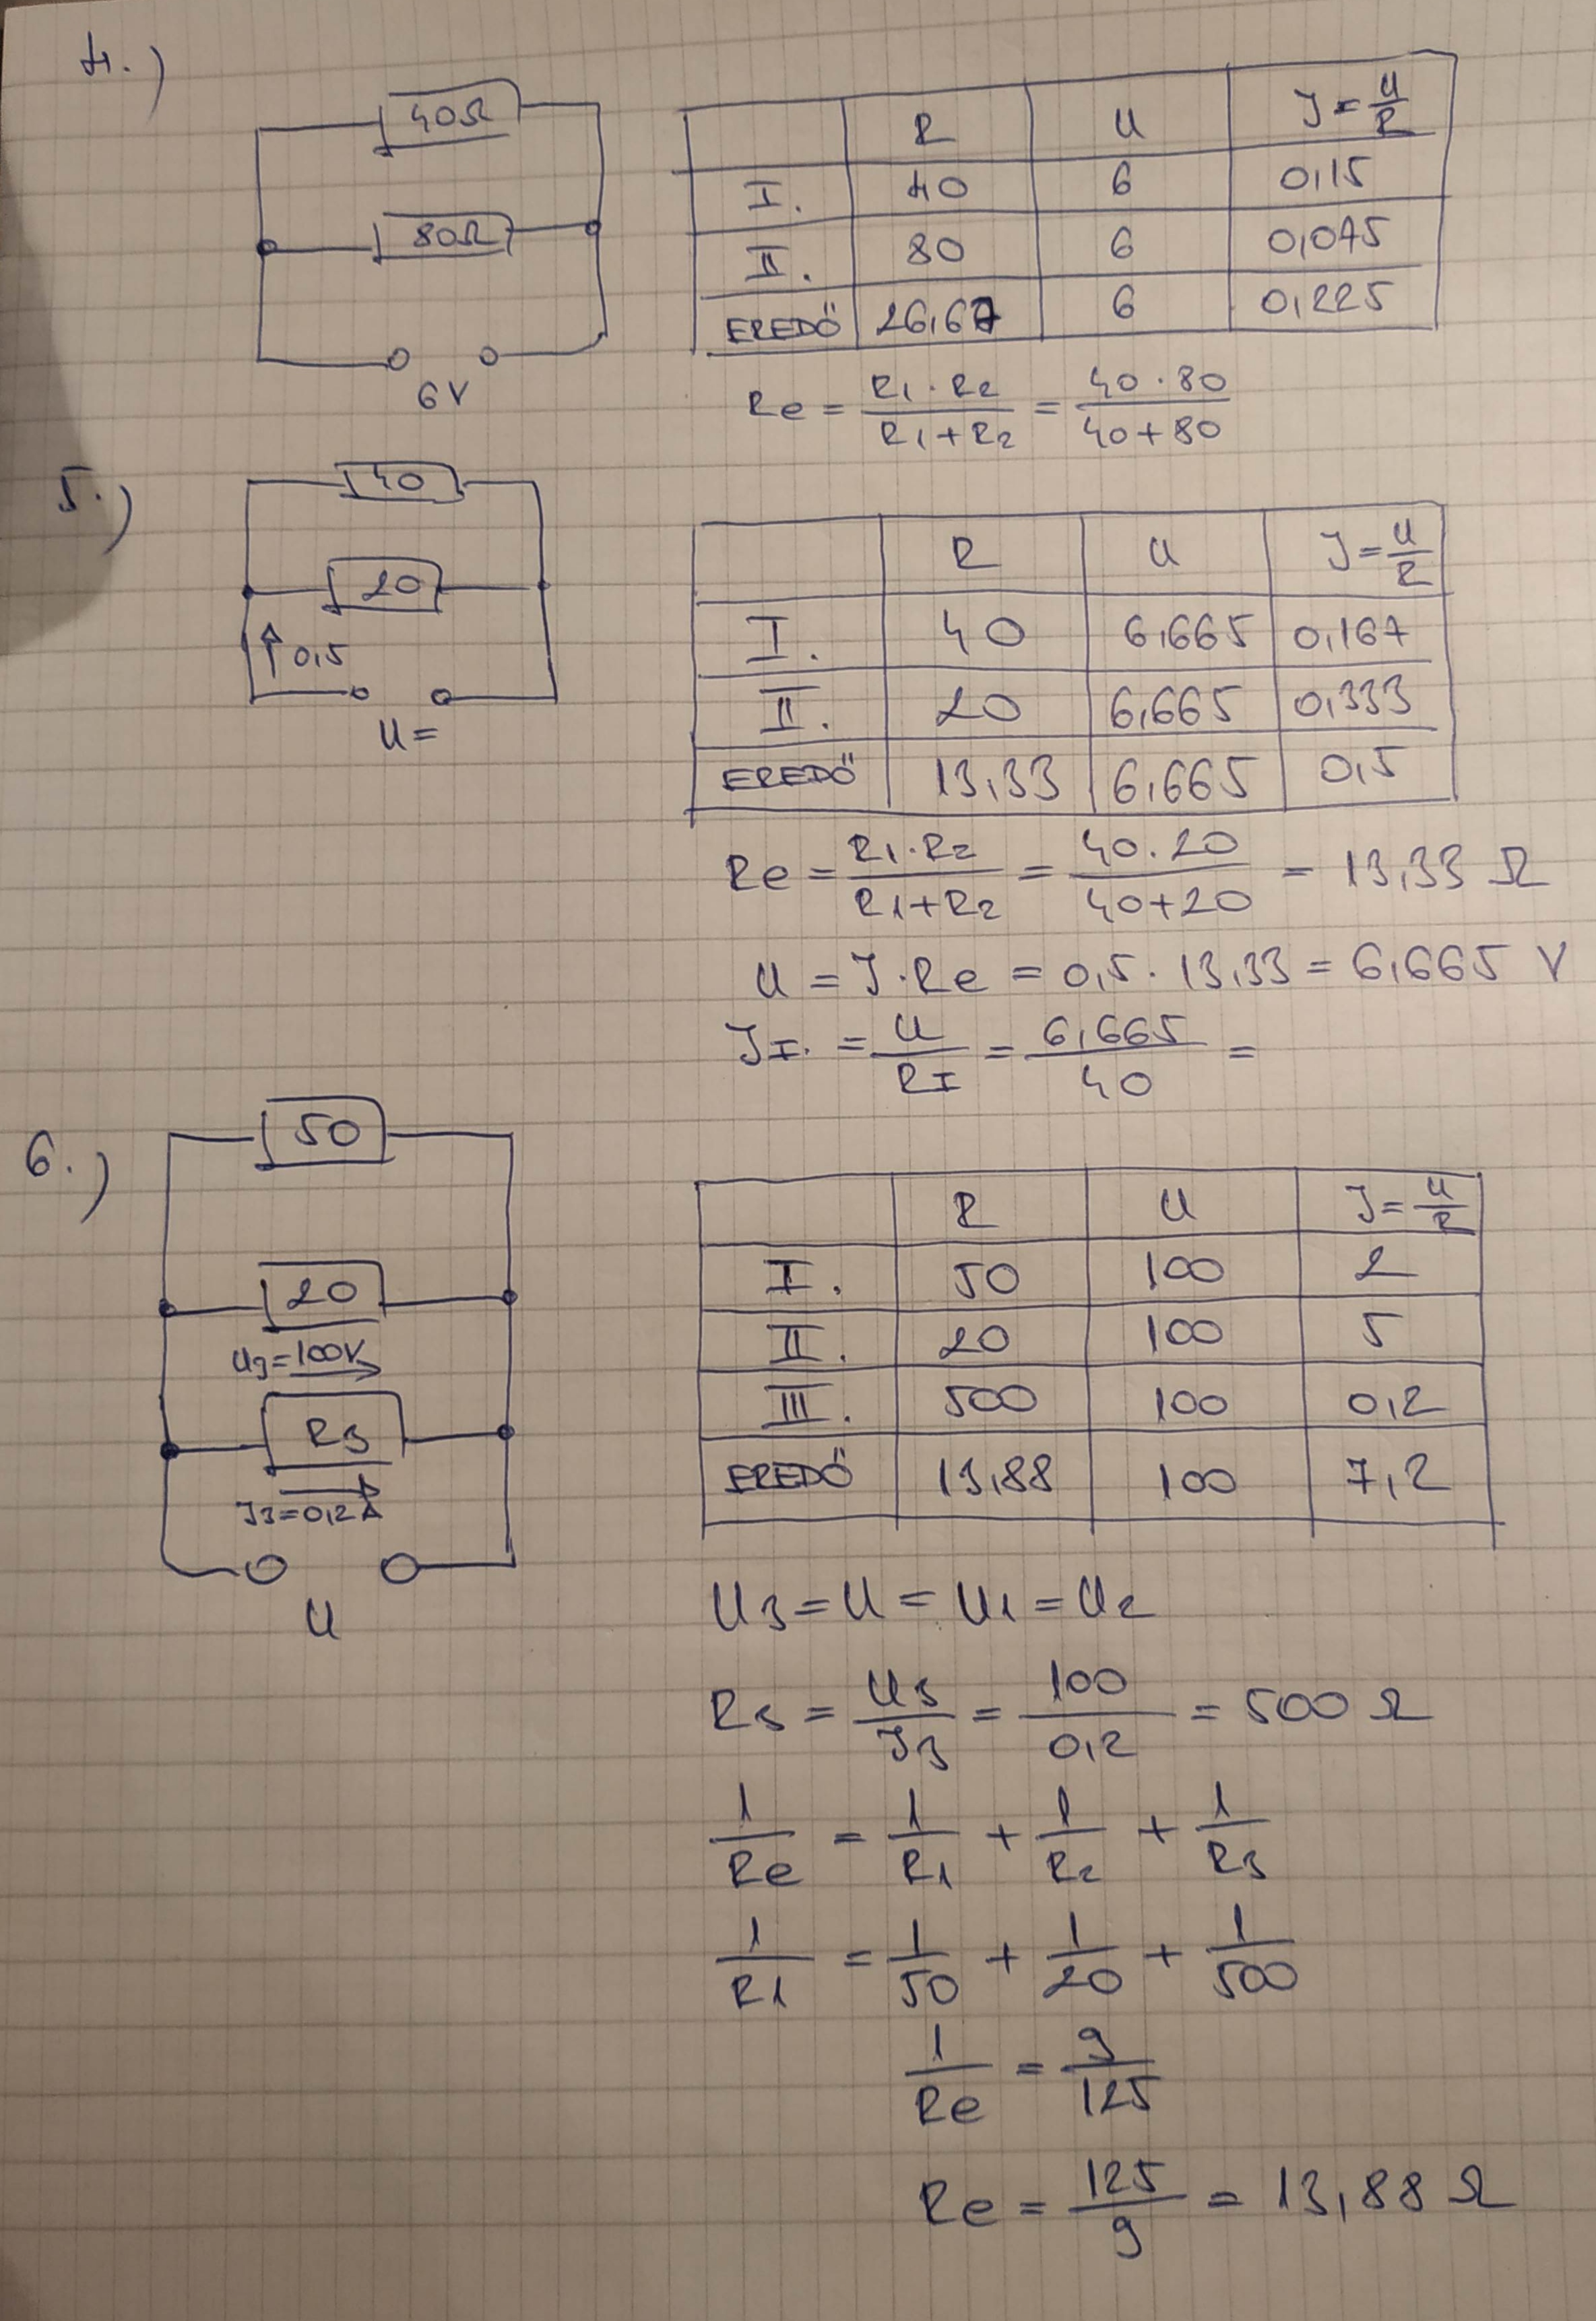 4.)
40Ω
80Ω
6V
R U J = U/R
I. 40 6 0,15
II. 80 6 0,075
EREDŐ 26,67 6 0,225
Re = R1·R2/R1+R2 = 40·80/40+80
5.)
40
20
0,5
U=
R U J = U/R
I. 40 6,665 0,167
II. 20 6,665 0,333
EREDŐ 13,33 6,665 0,5
Re = R1·R2/R1+R2 = 40·20/40+20 = 13,33 Ω
U = J·Re = 0,5·13,33 = 6,665 V
JI. = U/RI = 6,665/40 =
6.)
50
20
U3=100V
R3
J3=0,2A
U
R U J = U/R
I. 50 100 2
II. 20 100 5
III. 500 100 0,2
EREDŐ 13,88 100 7,2
U3 = U = U1 = U2
R3 = U3/J3 = 100/0,2 = 500 Ω
1/Re = 1/R1 + 1/R2 + 1/R3
1/R1 = 1/50 + 1/20 + 1/500
1/Re = 9/125
Re = 125/9 = 13,88 Ω